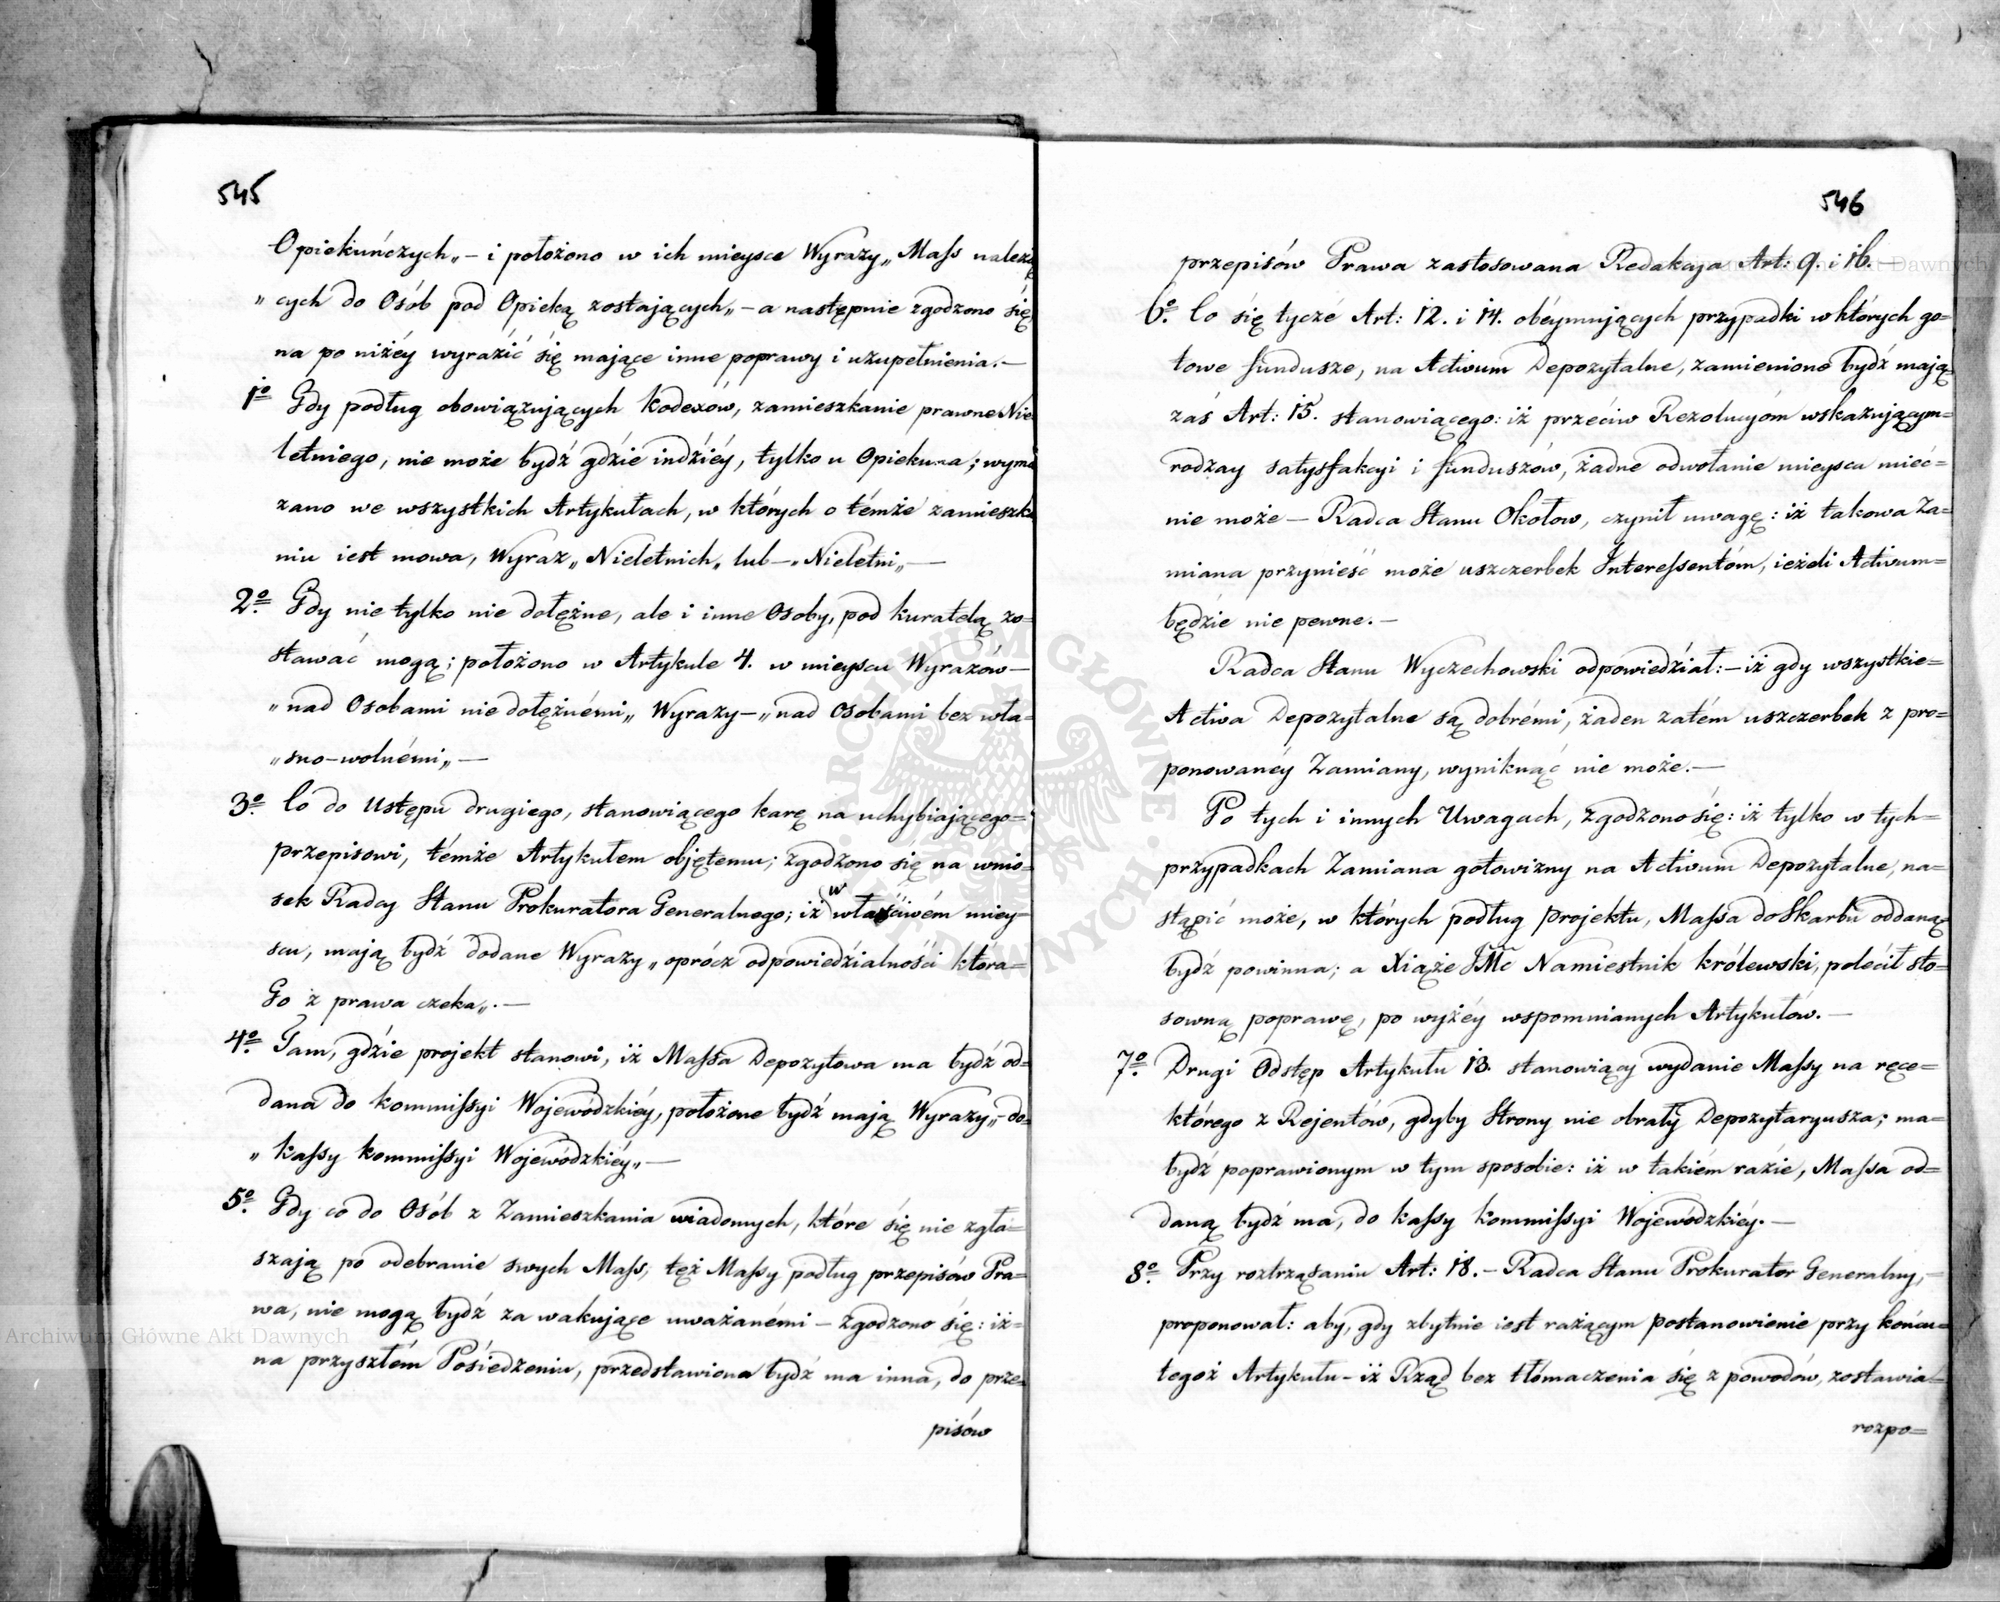 545
Opiekuńczych„ – i położono w ich mieysce Wyrazy „ Mass należą
„ cych do Osób pod Opieką zostaiących„ – a następnie zgodzono się
na po niżéy wyrazić się maiące inne poprawy i uzupełnienia. —
1o Gdy podług obowiązuiących Kodexów, zamieszkanie prawne Nie
letniego, nie może bydź gdzie indziéy, tylko u Opiekuna; wyma
zano we wszystkich Artykułach, w których o témże zamieszka
niu iest mowa, Wyraz „ Nieletnich„ lub – „ Nieletni„ —
2o Gdy nie tylko nie dołężne, ale i inne Osoby, pod kuratelą zo=
stawać mogą; położono w Artykule 4. w mieyscu Wyrazów —
„ nad Osobami nie dołężnémi„ Wyrazy – „ nad Osobami bez wła=
„ sno-wolnémi„ —
3o Co do Ustępu drugiego, stanowiącego karę na uchybiaiącego=
przepisowi, témże Artykułem obiętemu; zgodzono się na wnio=
sek Radcy Stanu Prokuratora Generalnego; iż w właściwém miey=
scu, maią bydź dodane Wyrazy „ oprócz odpowiedzialności która=
Go z prawa czeka„. —
4o Tam, gdzie projekt stanowi, iż Massa Depozytowa ma bydź od=
dana do Kommissyi Woiewódzkiéy, położone bydź maią Wyrazy „ – do=
„ Kassy Kommissyi Woiewódzkiéy„ —
5o Gdy co do Osób z Zamieszkania wiadomych, które się nie zgła=
szaią po odebranie swych Mass, też Massy podług przepisów Pra=
wa, nie mogą bydź za wakuiące uważanémi – zgodzono się: iż=
na przyszłém Posiedzeniu, przedstawiona bydź ma inna, do prze=
pisów
546
przepisów Prawa zastosowana Redakcya Art: 9. i 16. —
6o Co się tycze Art: 12. i 14. obéymuiących przypadki w których go=
towe fundusze, na Activum Depozytalne, zamienione bydź maią
zaś Art: 15. stanowiącego: iż przeciw Rezolucyóm wskazuiącym=
rodzay satysfakcyi i funduszów, żadne odwołanie mieysca mieć=
nie może – Radca Stanu Okołow, czynił uwagę: iż takowa Za=
miana przynieść może uszczerbek Interessentóm, ieżeli Activum=
będzie nie pewne. —
Radca Stanu Wyczechowski odpowiedział: – iż gdy wszystkie=
Activa Depozytalne są dobrémi, żaden zatém uszczerbek z pro=
ponowanéy Zamiany, wyniknąć nie może. —
Po tych i innych Uwagach, zgodzono się: iż tylko w tych=
przypadkach Zamiana gotowizny na Activum Depozytalne, na=
stąpić może, w których podług projektu, Massa do Skarbu oddaną
bydź powinna; a Xiąże JMć Namiestnik Królewski, polecił sto=
sowną poprawę, po wyżéy wspomnianych Artykułów. —
7o Drugi Odstęp Artykułu 13. stanowiący wydanie Massy na ręce=
którego z Rejentów, gdyby Strony nie obrały Depozytaryusza; ma=
bydź poprawionym w tym sposobie: iż w takiém razie, Massa od=
daną bydź ma, do Kassy Kommissyi Woiewódzkiéy. —
8o Przy roztrząsaniu Art: 18. – Radca Stanu Prokurator Generalny, –
proponował: aby, gdy zbytnie iest rażącym postanowienie przy końcu=
tegoż Artykułu – iż Rząd bez tłómaczenia się z powodów, zostawia=
rozpo=
Archiwum Główne Akt Dawnych